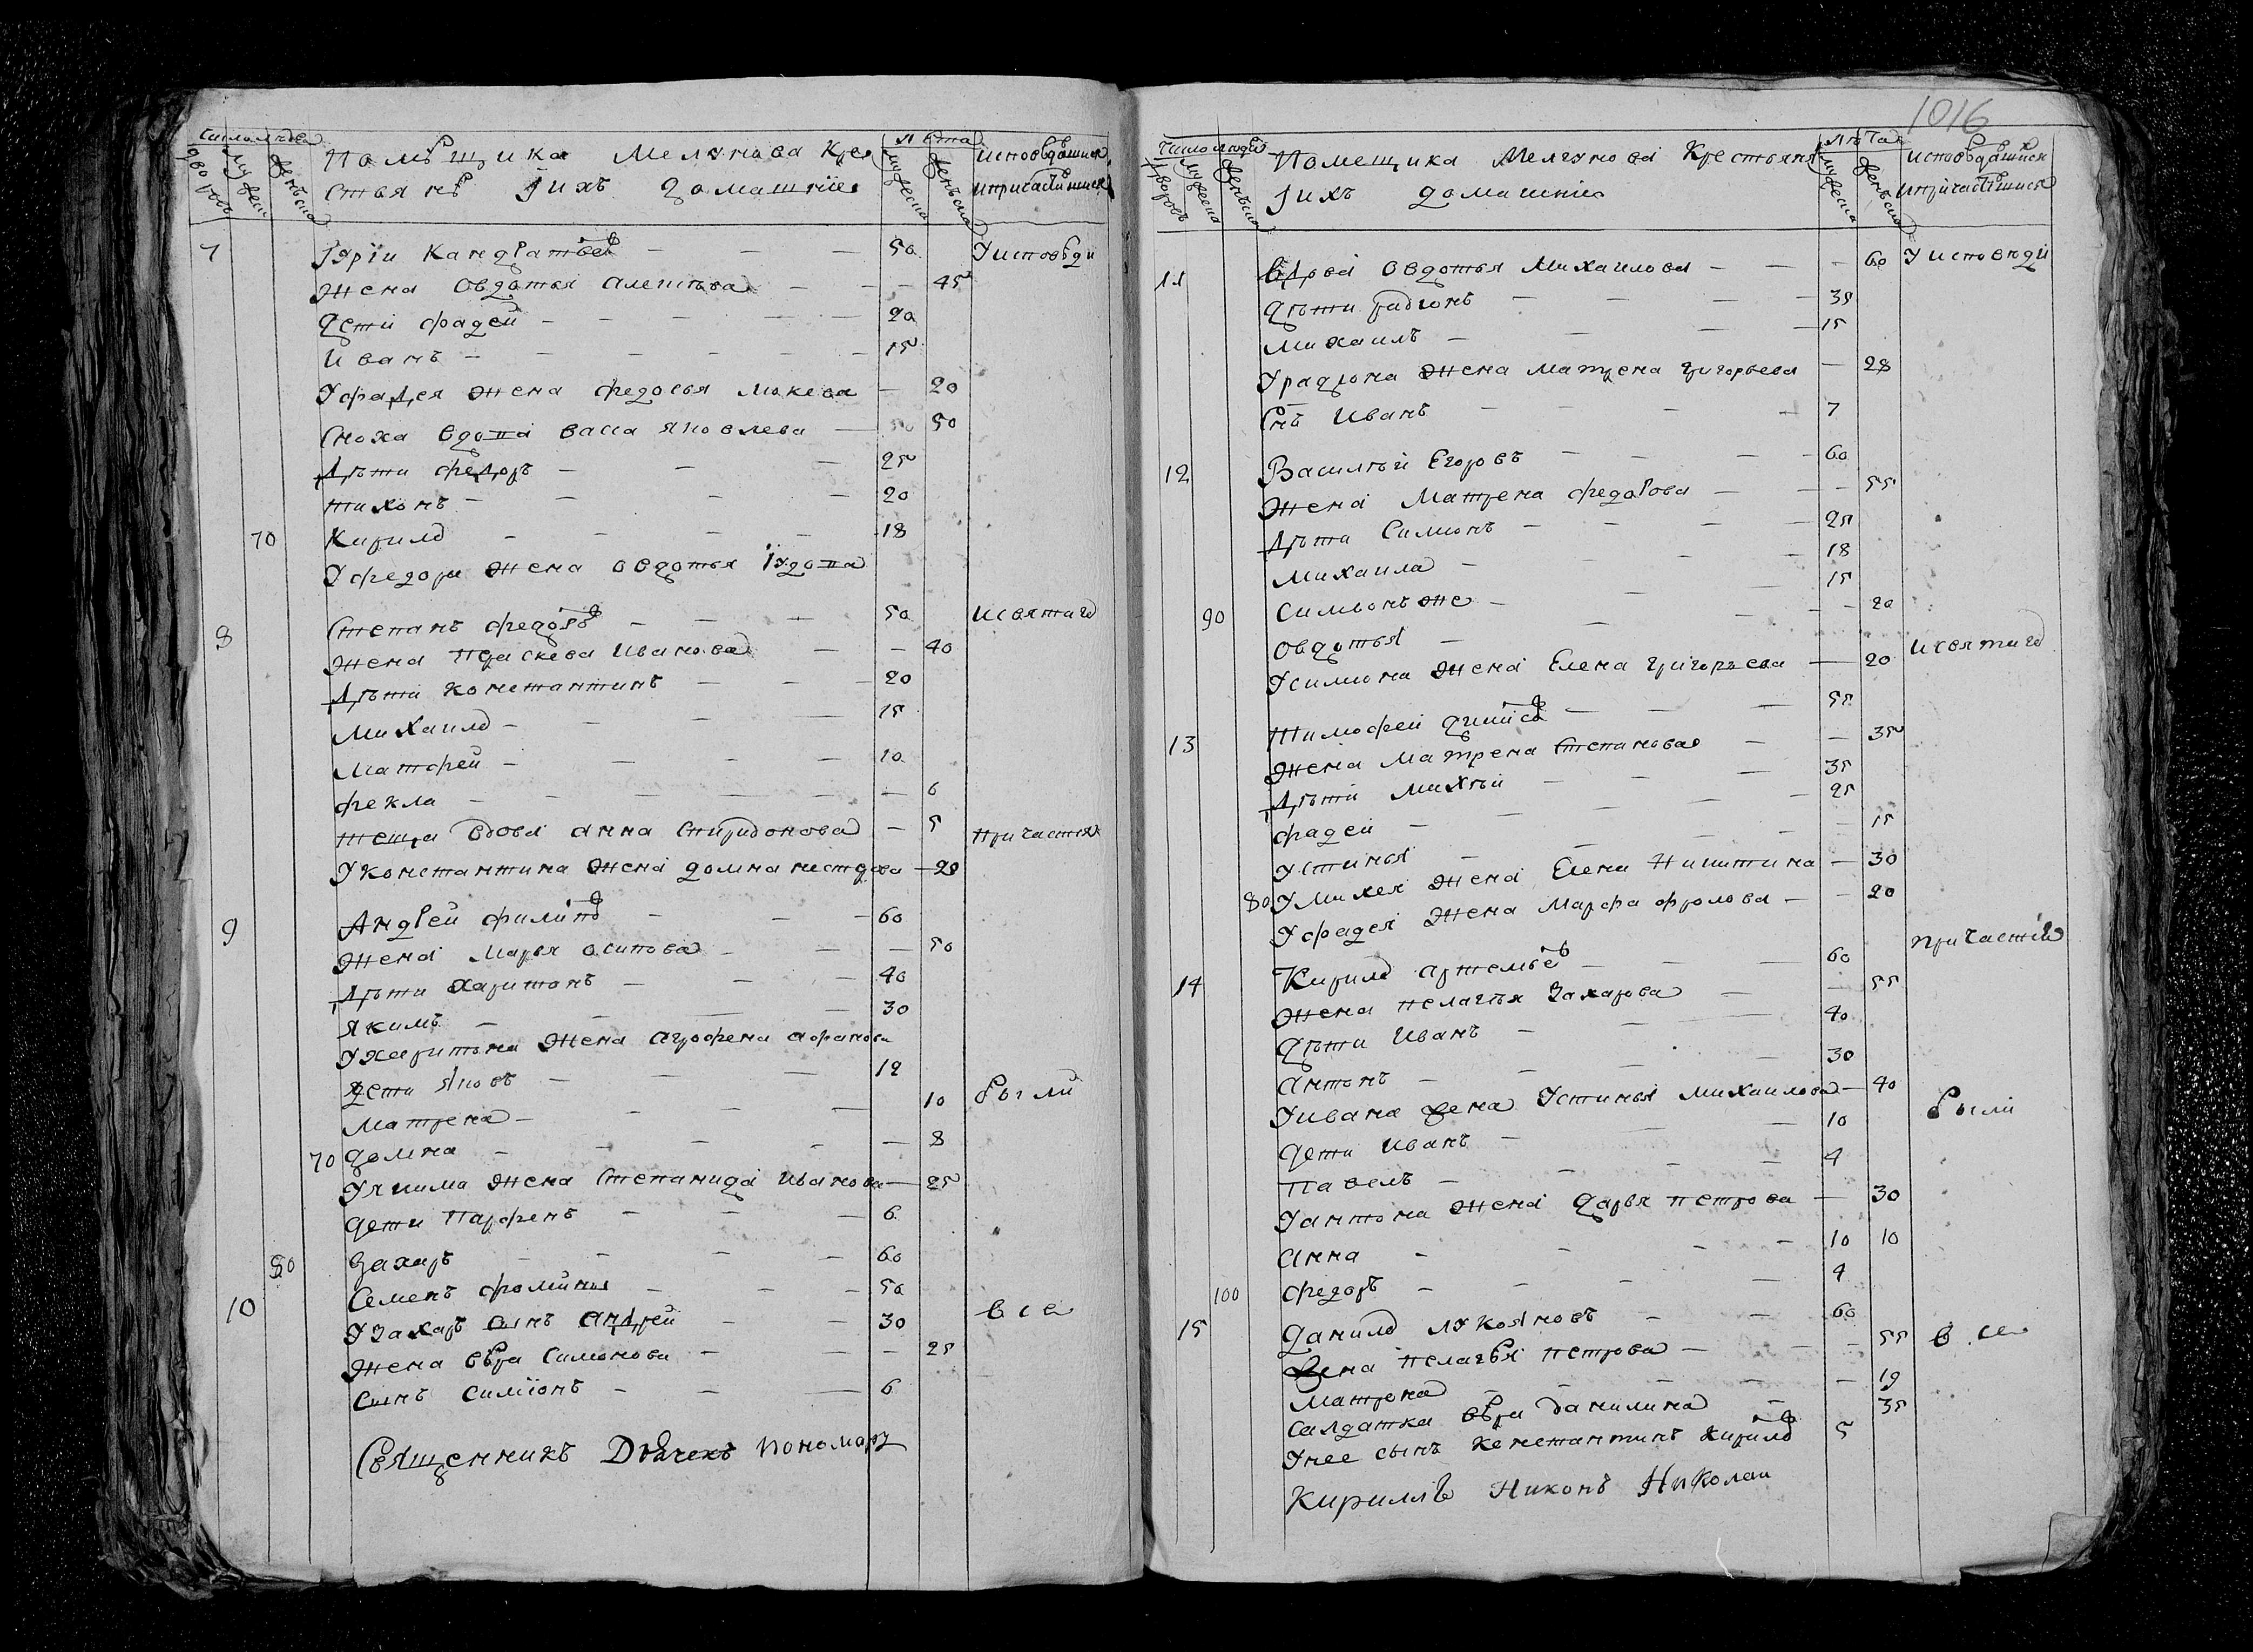 Число людеи
дворовъ
мужеска
женъска
Помѣщика Мелгунова Кре
стьянѣ Iихъ домашнїе
лѣта
мужеска
женъска
исповѣдашися
ипричастишися
7 Юрїи Кандратьевъ — — — 50 Уисповѣди
жена Овдотья Алешѣва — — — 45
дети фадеи — — — — — 20
Иванъ — — — — — — 15
Уфадея жена федосья Макева — 20
Сноха вдова Васса Яковлева — 50
Дѣти федоръ — — — 25
тихонъ — — — — 20
70 Кирило — — — — 18
Уфедора жена овдотья
8 Степанъ федотовъ — — — 50 исвятаго
жена праскева Иванова — — 40
Дѣти константинъ — — — 20
Михаило — — — — 15
Матфеи — — — — — 10
фекла — — — — — — 6
теща вдова анна спиридонова — 5 причастия
Уконстантина жена домна нестерова — 20
9 Андреи филиповъ — — — 60
жена Марья осипова — — — 50
Дѣти харитонъ — — — 40
якимъ — — — — 30
Ухаритона жена агрофена афанова
дети Яковъ — — — 12
Матрена — — — — — 10 были
70 домна — — — — — 8
Уякима жена Степанида Иванова — 25
дети Парфенъ — — — 6
80 Захаръ — — — — 60
10 Семенъ фоминъ — — — 50
Узахаръ сынъ Андреи — — 30 все
жена вѣра Симонова — — — 25
сынъ симїонъ — — — 6
Священникъ Дьячекъ Пономарь
1016
Число людеи
дворовъ
мужеска
женъска
Помещика Мелгунова Крестьяня
Iихъ домашнїе
лѣта
мужеска
женъска
исповѣдашися
ипричастишися
11 Вдова овдотья Михаилова — — — 60 Уисповѣди
дѣти радионъ — — — — 35
Михаилъ — — — — 15
Урадиона жена матрена григорьева — 28
Снъ Иванъ — — — — 7
12 Василѣи Егоровъ — — — 60
жена Матрена федотова — — — 55
Дѣти Симионъ — — — — 25
Михаила — — — — 18
90 симионъ же — — — 15
овдотья — — — — 20
Усимиона жена Елена григорьева — 20 исвятаго
13 Тимофеи — — — 55
жена Матрена степанова — — 35
Дѣти Михѣи — — — 35
фадеи — — — — 25
Устинья — — — — — 15
80 Умихея жена Елена Никитина — 30
Уфадея жена Марфа фролова — — 20
14 Кирило артемьевъ — — — 60 причастїя
жена пелагѣя Захарова — — 55
дѣти Иванъ — — — 40
антонъ — — — — 30
Уивана жена Устинья михаилова — 40 были
дети Иванъ — — — 10
Павелъ — — — — 4
Уантона жена дарья петрова — 30
Анна — — — — 10 10
100 федоръ — — — — 4
15 данило лукояновъ — — 60
жена пелагѣя петрова — — — 55 все
Матрона — — — — — 19
салдатка вѣра данилина — 35
Унее сынъ константинъ кириловъ 5
Кириллъ Никонъ Николаи